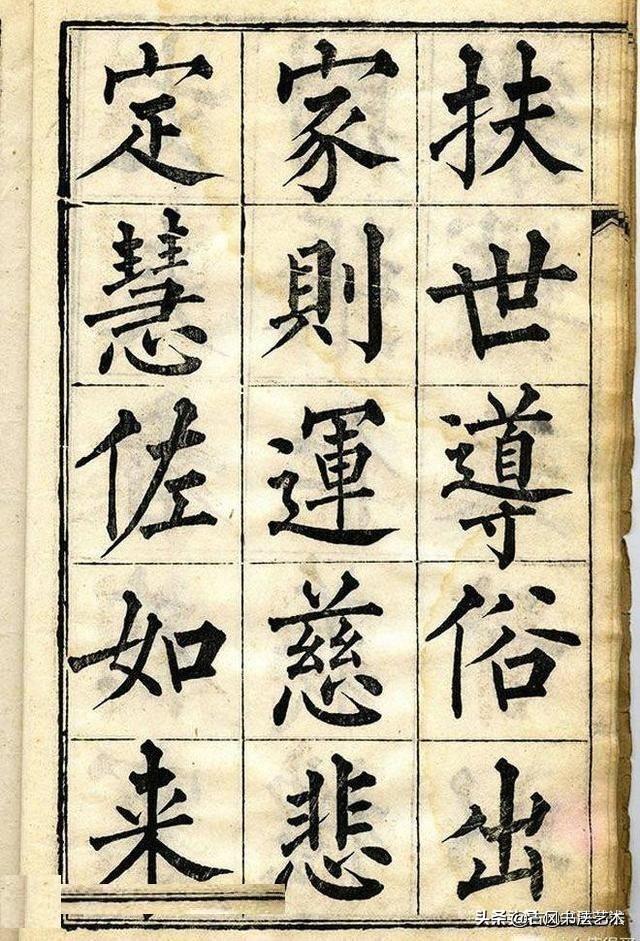 扶世導俗出
家則運慈悲
定慧佐如来
头条 @古风书法艺术